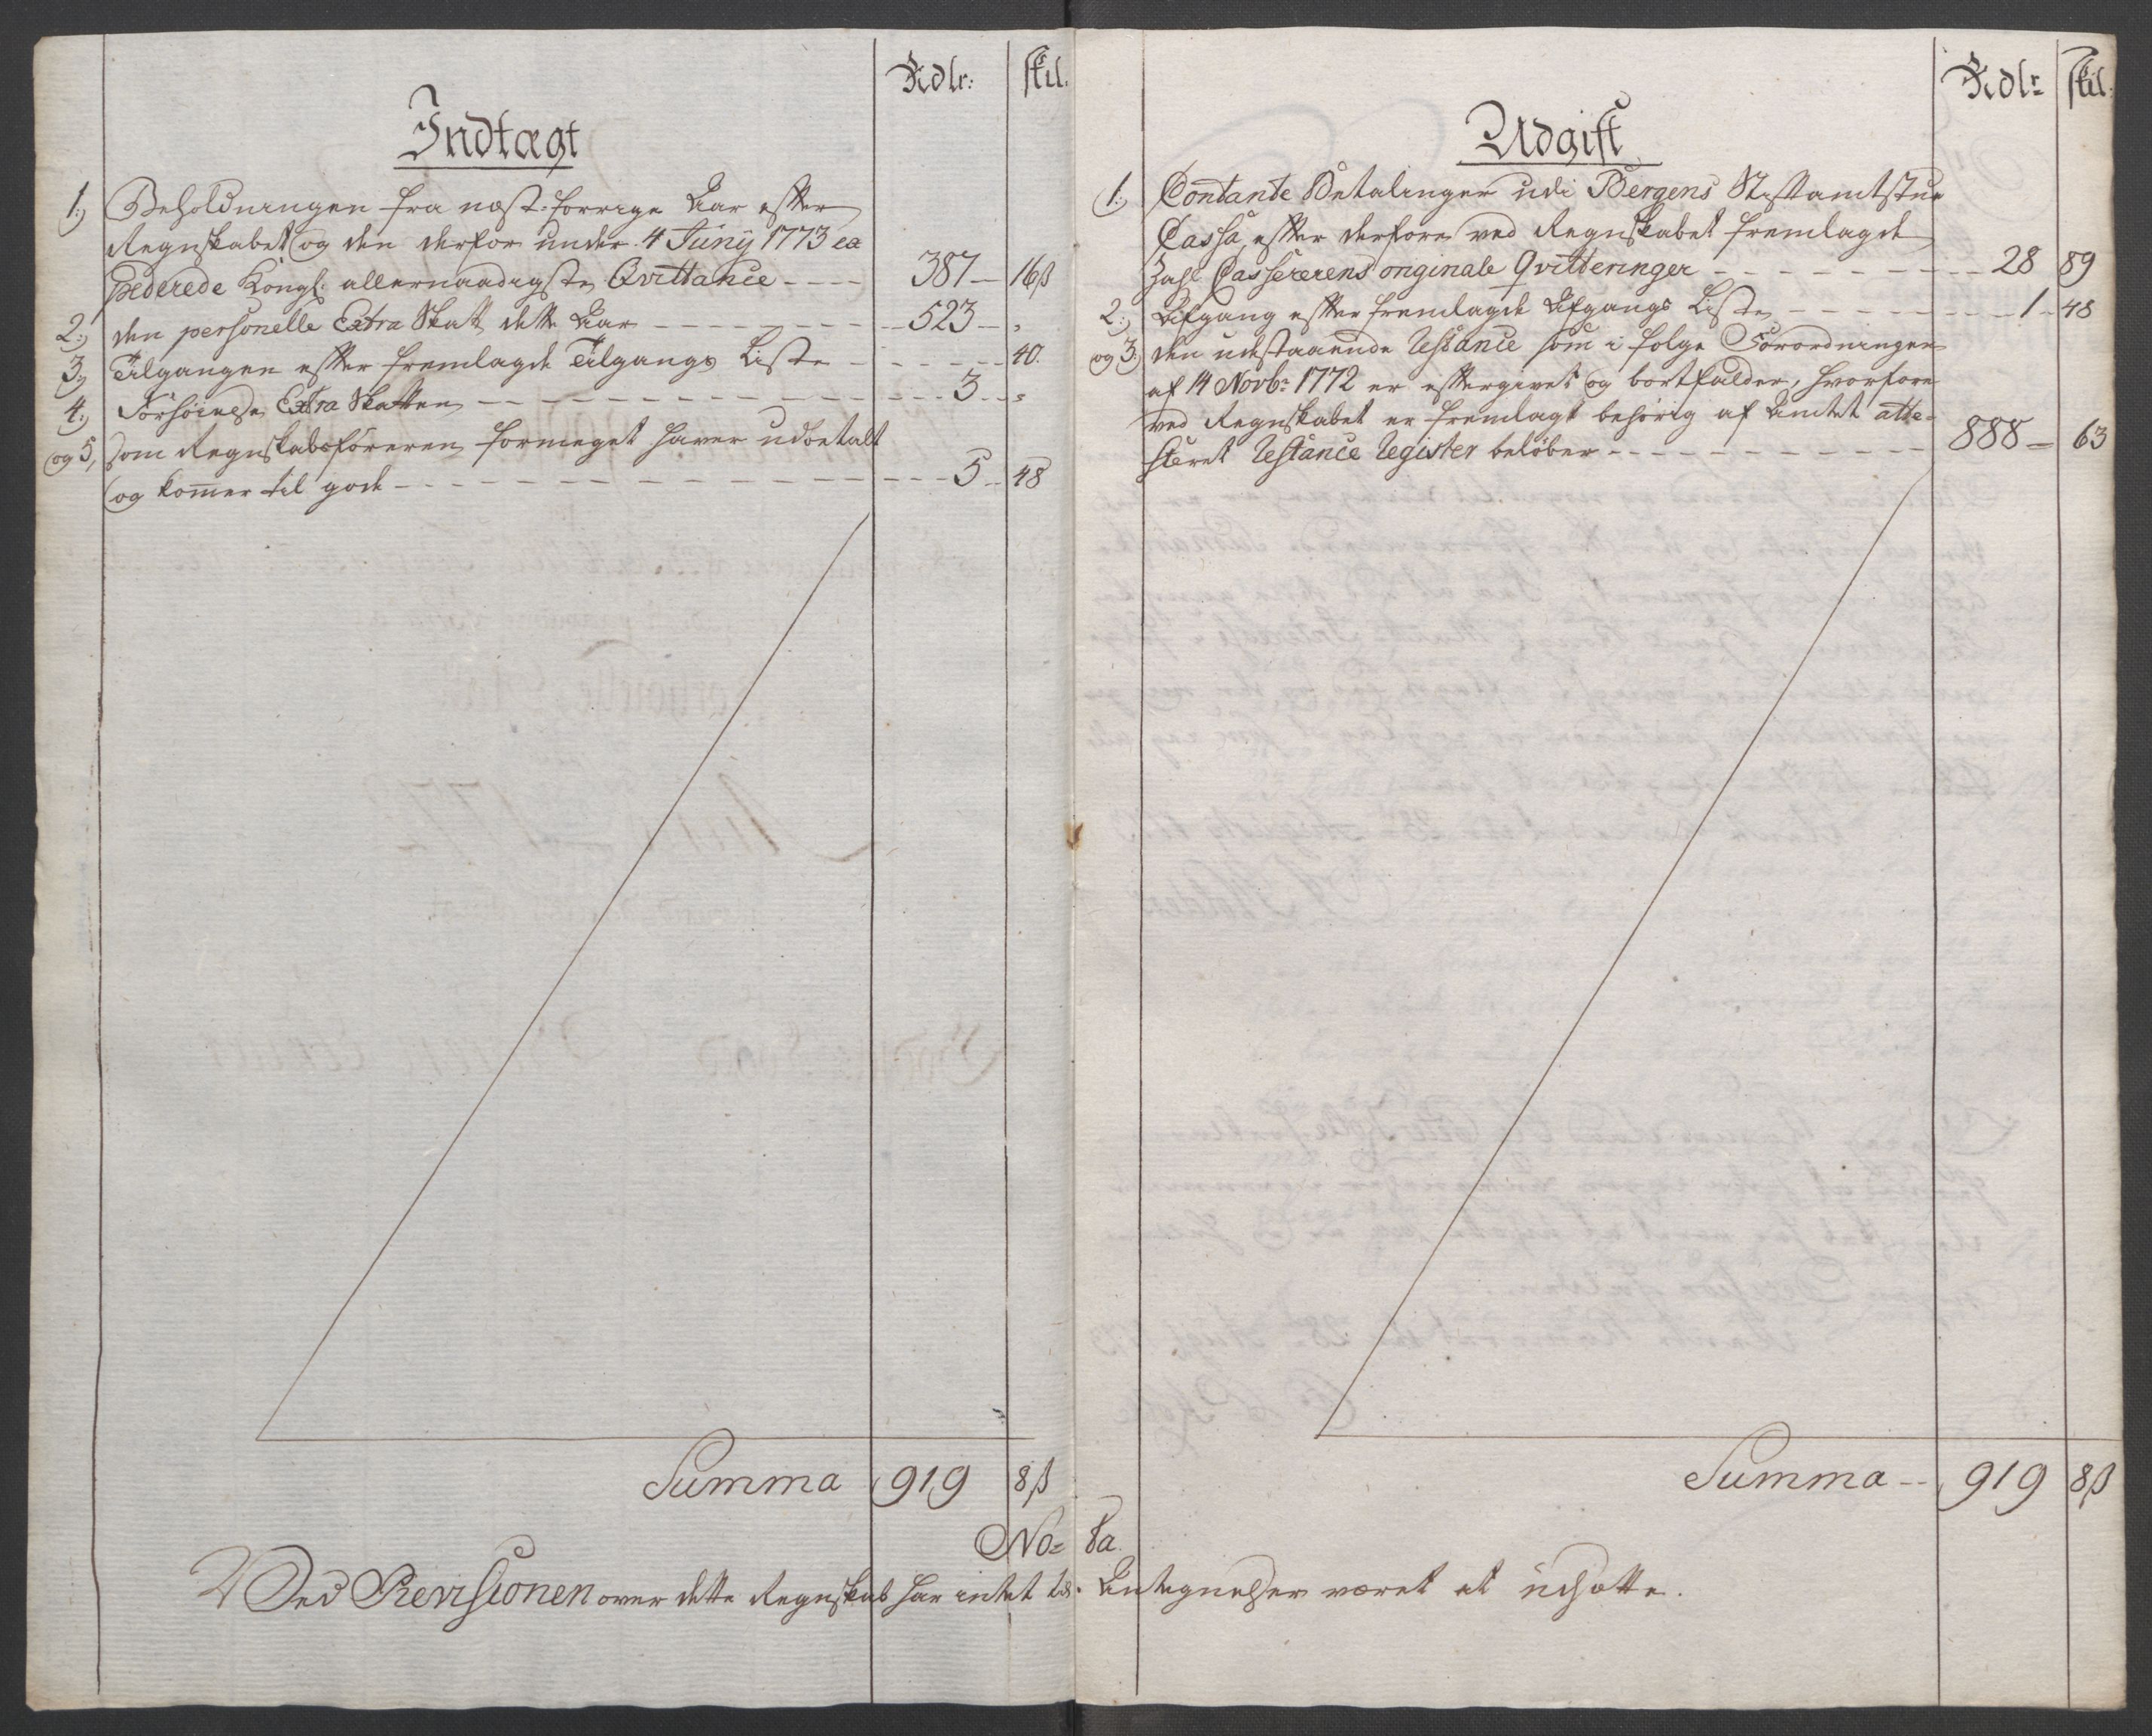 Rdlr: skil.
Indtægt
1.) Beholdningen fra næst-forrige Aar efter
Regnskabet og den derfor under 4 Junij 1773 ex
pederede Kongl: allernaadigste Qvittance - - - - 387 - 16ß
2.) den personelle Extra Skatt dette Aar - - - - - - - - 523 - "
3.) Tilgangen efter fremlagde Tilgangs Liste - - - - - 40.
4.) Forhøiede Extra Skatten - - - - - - - - - - 3 - "
og 5, som Regnskabsføreren formeget haver udbetalt
og kommer til gode - - - - - - - - - - - - - 5 - 48
Summa 919 8ß
Rdlr skil.
Udgift
1.) Contande Betalinger udi Bergens Stiftamtstue
Cassa, efter derfore ved Regnskabet fremlagde
Zahl Cassererens originale Qvitteringer - - - - - - - - 28 89
2.) Afgang efter fremlagde Afgangs Liste - - - - - - - 1 - 48
og 3.) den udestaaende Restance som i følge Forordningen
af 14 Novbr: 1772 er eftergivet og bortfalder, hvorfore
ved Regnskabet er fremlagt behørig af Amtet atte-
steret Restance Register beløber - - - - - - - - - - - 888 - 63
Summa - - 919 8ß
No= 8a.
Ved Revisionen over dette Regnskab har intet til Antegnelser været at udsætte.